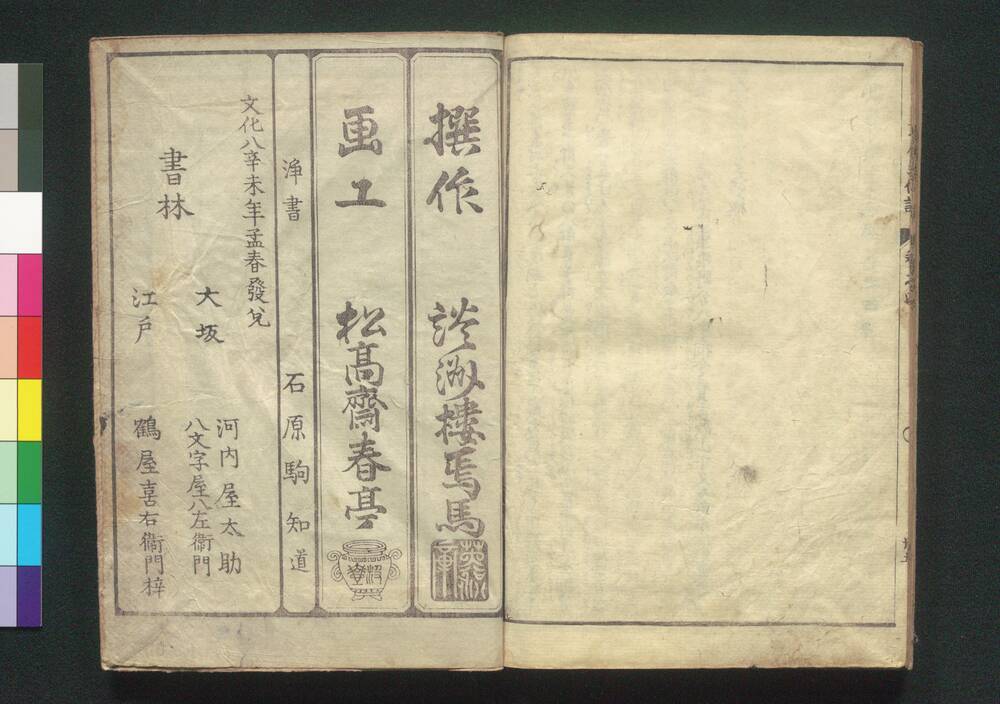 撰作　談洲楼焉馬
画工　松高齋春亭
浄書　石原駒知道
文化八辛未年孟春發兌
書林
大坂　河内屋太助
八文字屋八左衞門
江戸　鶴屋喜右衞門梓